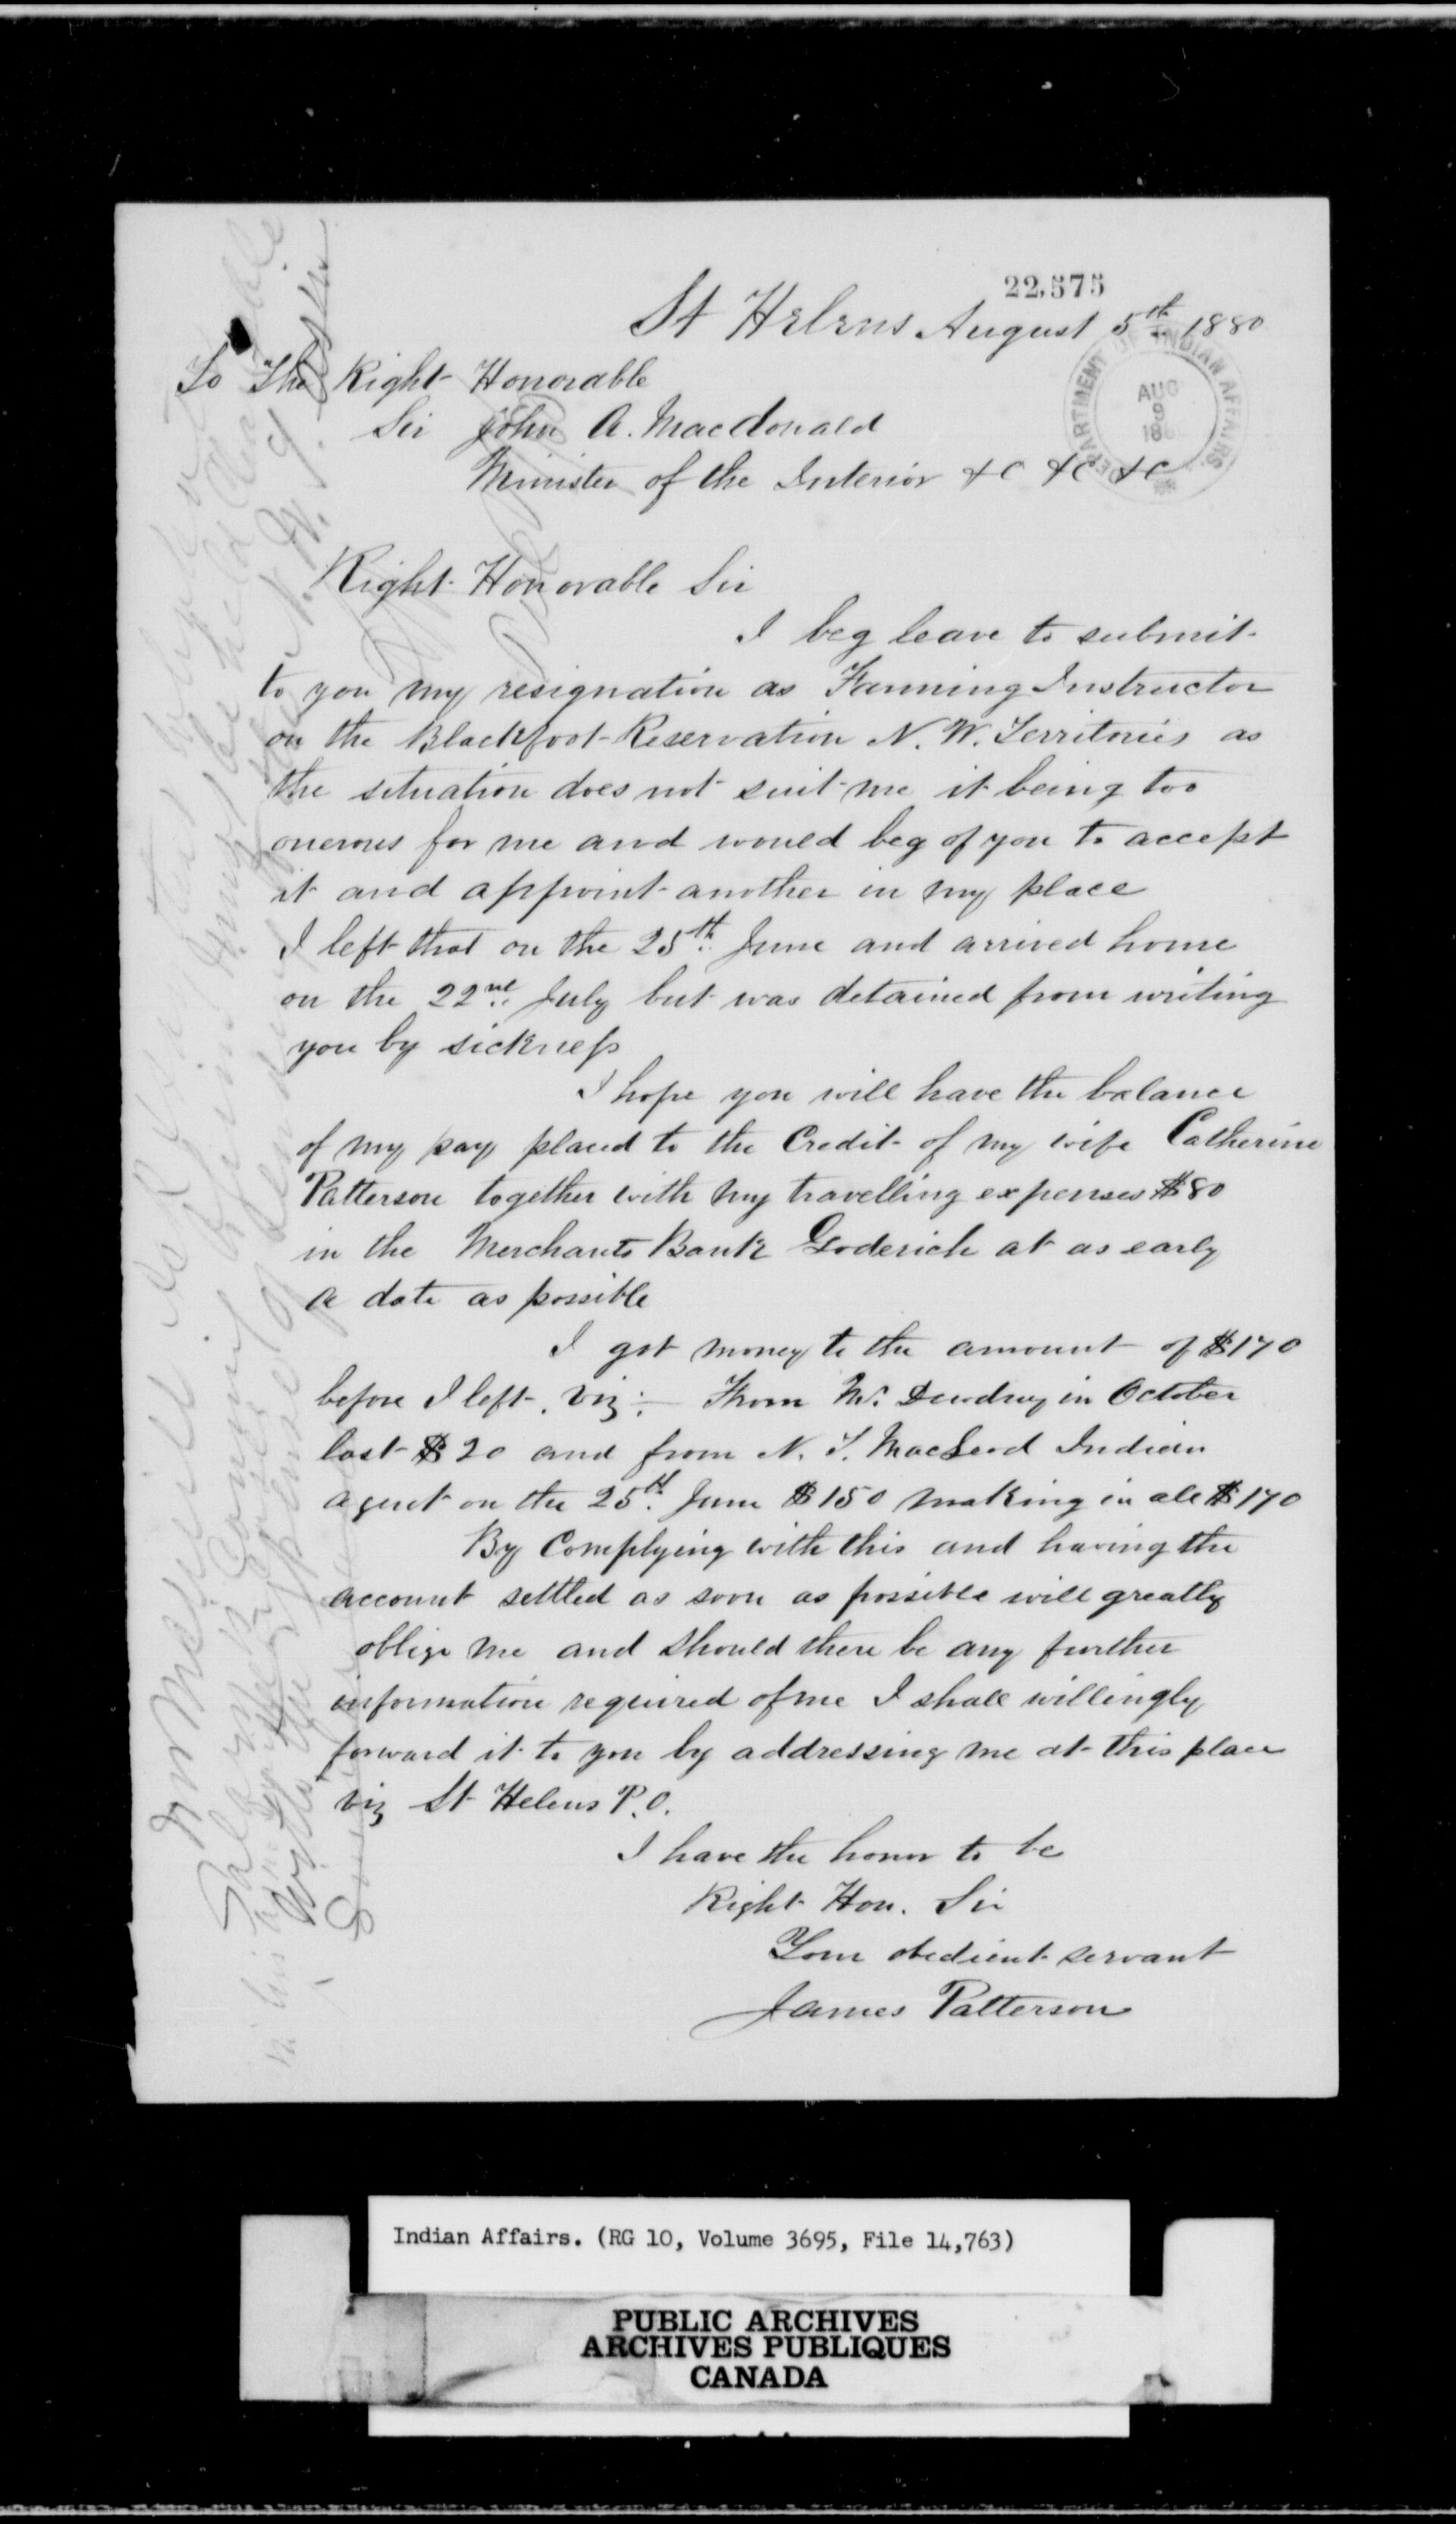 22,575
St Helens August 5th 1880
DEPARTMENT OF INDIAN AFFAIRS.
AUG
9
To The Right Honorable
Sir John A. Macdonald
Minister of the Interior &C &C &C
Right Honorable Sir
I beg leave to submit
to you my resignation as Farming Instructor
on the Blackfoot Reservation N. W. Territories as
the situation does not suit me it being too
onerous for me and would beg of you to accept
it and appoint another in my place
I left that on the 25th June and arrived home
on the 22nd July but was detained from writing
you by sickness
I hope you will have the balance
of my pay placed to the Credit of my wife Catherine
Patterson together with my travelling expenses $80
in the Merchants Bank Goderich at as early
a date as possible
I got money to the amount of $170
before I left, viz:- From Mr. Dewdney in October
last $20 and from N. T. MacLeod Indian
agent on the 25th June $150 making in all $170
By Complying with this and having the
account settled as soon as possible will greatly
oblige me and should there be any further
information required of me I shall willingly
forward it to you by addressing me at this place
viz St Helens P.O.
I have the honor to be
Right Hon. Sir
Your obedient servant
James Patterson
Indian Affairs. (RG 10, Volume 3695, File 14,763)
PUBLIC ARCHIVES
ARCHIVES PUBLIQUES
CANADA